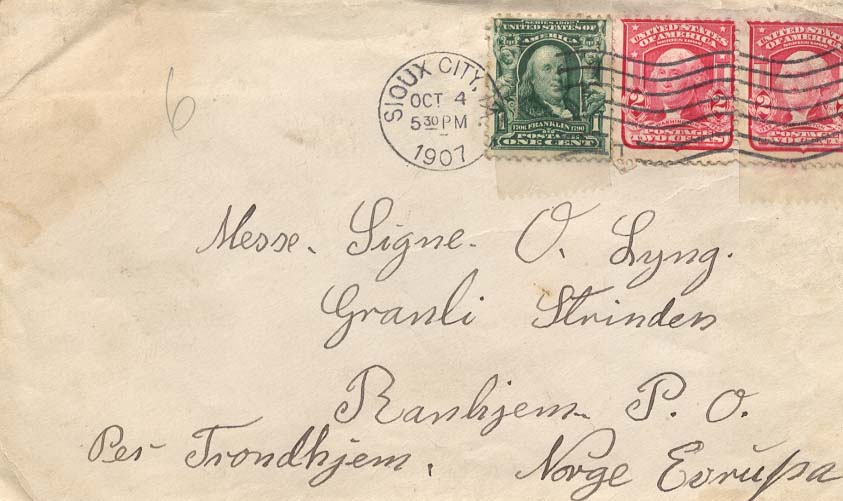 SERIES 1902
UNITED STATES OF
AMERICA
1706 FRANKLIN 1790
POSTAGE
1 ONE CENT 1
UNITED STATES
OF AMERICA
2 2
POSTAGE
TWO CENTS
UNITED STATES
OF AMERICA
2
POSTAGE
TWO CENTS
SIOUX CITY,
OCT 4
530 PM
1907
6
Messe. Signe. O. Lyng.
Granli Strinden
Ranhjem P. O.
Per Trondhjem. Norge Evrupa